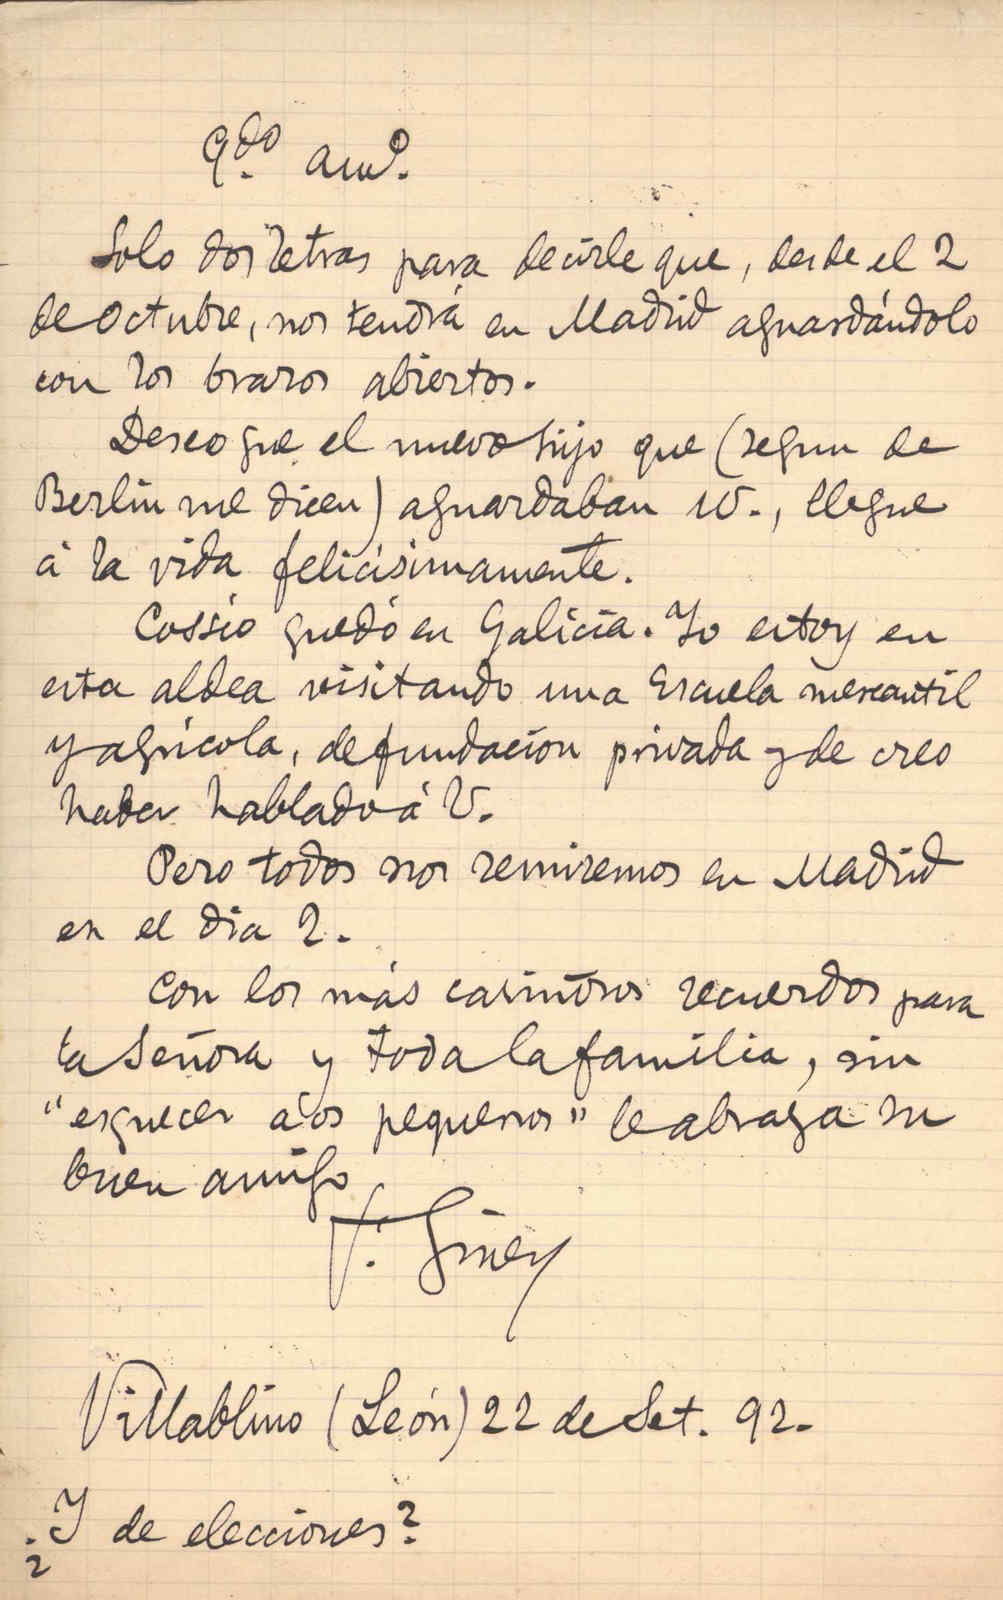 Qdo. amo.
Solo dos letras para decirle que, desde el 2
de Octubre, nos tendrá en Madrid aguardándolo
con los brazos abiertos.
Deseo que el nuevo hijo que (segun de
Berlin me dicen) aguardaban VV., llegue
á la vida felicísimamente.
Cossio quedó en Galicia. Yo estoy en
esta aldea visitando una Escuela mercantil
y agrícola, de fundacion privada y de creo
haber hablado á V.
Pero todos nos reuniremos en Madrid
en el dia 2.
Con los más cariñosos recuerdos para
la Señora y toda la familia, sin
"esquecer aos pequenos" le abraza su
buen amigo
F. Giner
Villablino (León) 22 de Set. 92.
¿Y de elecciones?